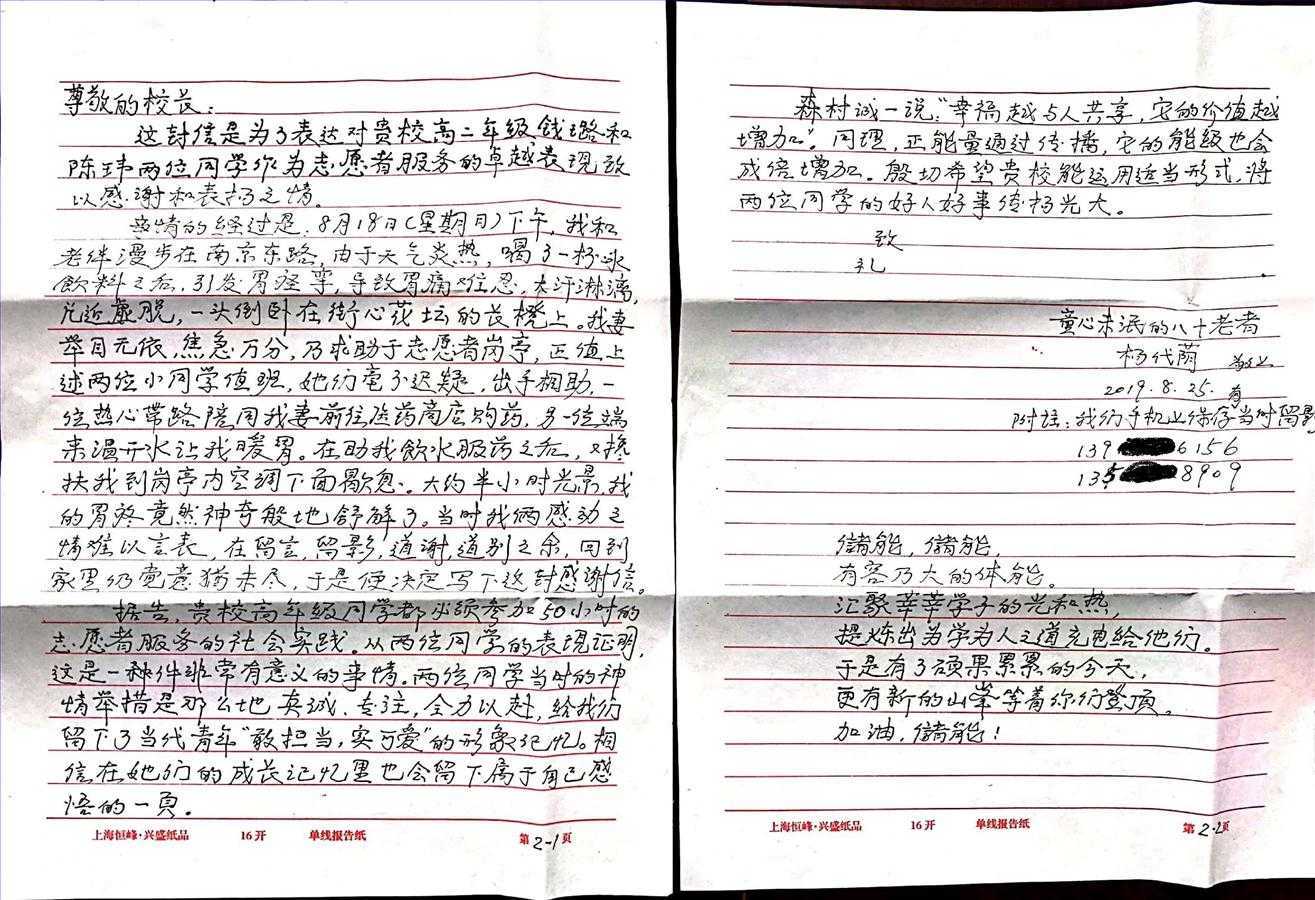 尊敬的校长：
这封信是为了表达对贵校高二年级钱璐和
陈玮两位同学作为志愿者服务的卓越表现致
以感谢和表扬之情。
事情的经过是，8月18日（星期日）下午，我和
老伴漫步在南京东路，由于天气炎热，喝了一杯冰
飲料之后，引发胃痉挛，导致胃痛难忍，大汗淋漓，
几近虚脱，一头倒卧在街心花坛的长櫈上。我妻
举目无依，焦急万分，乃求助于志愿者岗亭，正值上
述两位小同学值班，她们毫不迟疑，出手相助，一
位热心带路陪同我妻前往医药商店购药，另一位端
来温开水让我暖胃。在助我飲水服药之后，又搀
扶我到岗亭内空调下面歇息。大约半小时光景，我
的胃疼竟然神奇般地舒解了。当时我俩感动之
情难以言表，在留言，留影，道谢，道别之余，回到
家里仍觉意犹未尽，于是便决定写下这封感谢信。
据告，贵校高年级同学都必须参加50小时的
志愿者服务的社会实践。从两位同学的表现证明，
这是一种件非常有意义的事情。两位同学当时的神
情举措是那么地真诚、专注，全力以赴，给我们
留下了当代青年“敢担当，实可爱”的形象记忆。相
信在她们的成长记忆里也会留下属于自己感
悟的一頁。
上海恒峰·兴盛纸品 16开 单线报告纸 第2-1页
森村诚一说：“幸福越与人共享，它的价值越
增加”。同理，正能量通过传播，它的能级也会
成倍增加。殷切希望贵校能运用适当形式，将
两位同学的好人好事传扬光大。
致
礼
童心未泯的八十老者
杨代蔭 敬上
2019.8.25.
附注：我们手机上保存有当时留影
139 6156
135 8909
儲能，儲能，
有容乃大的体能。
汇聚莘莘学子的光和热，
提炼出为学为人之道充电给他们。
于是有了硕果累累的今天，
更有新的山峯等着你们登顶。
加油，儲能！
上海恒峰·兴盛纸品 16开 单线报告纸 第2-2页